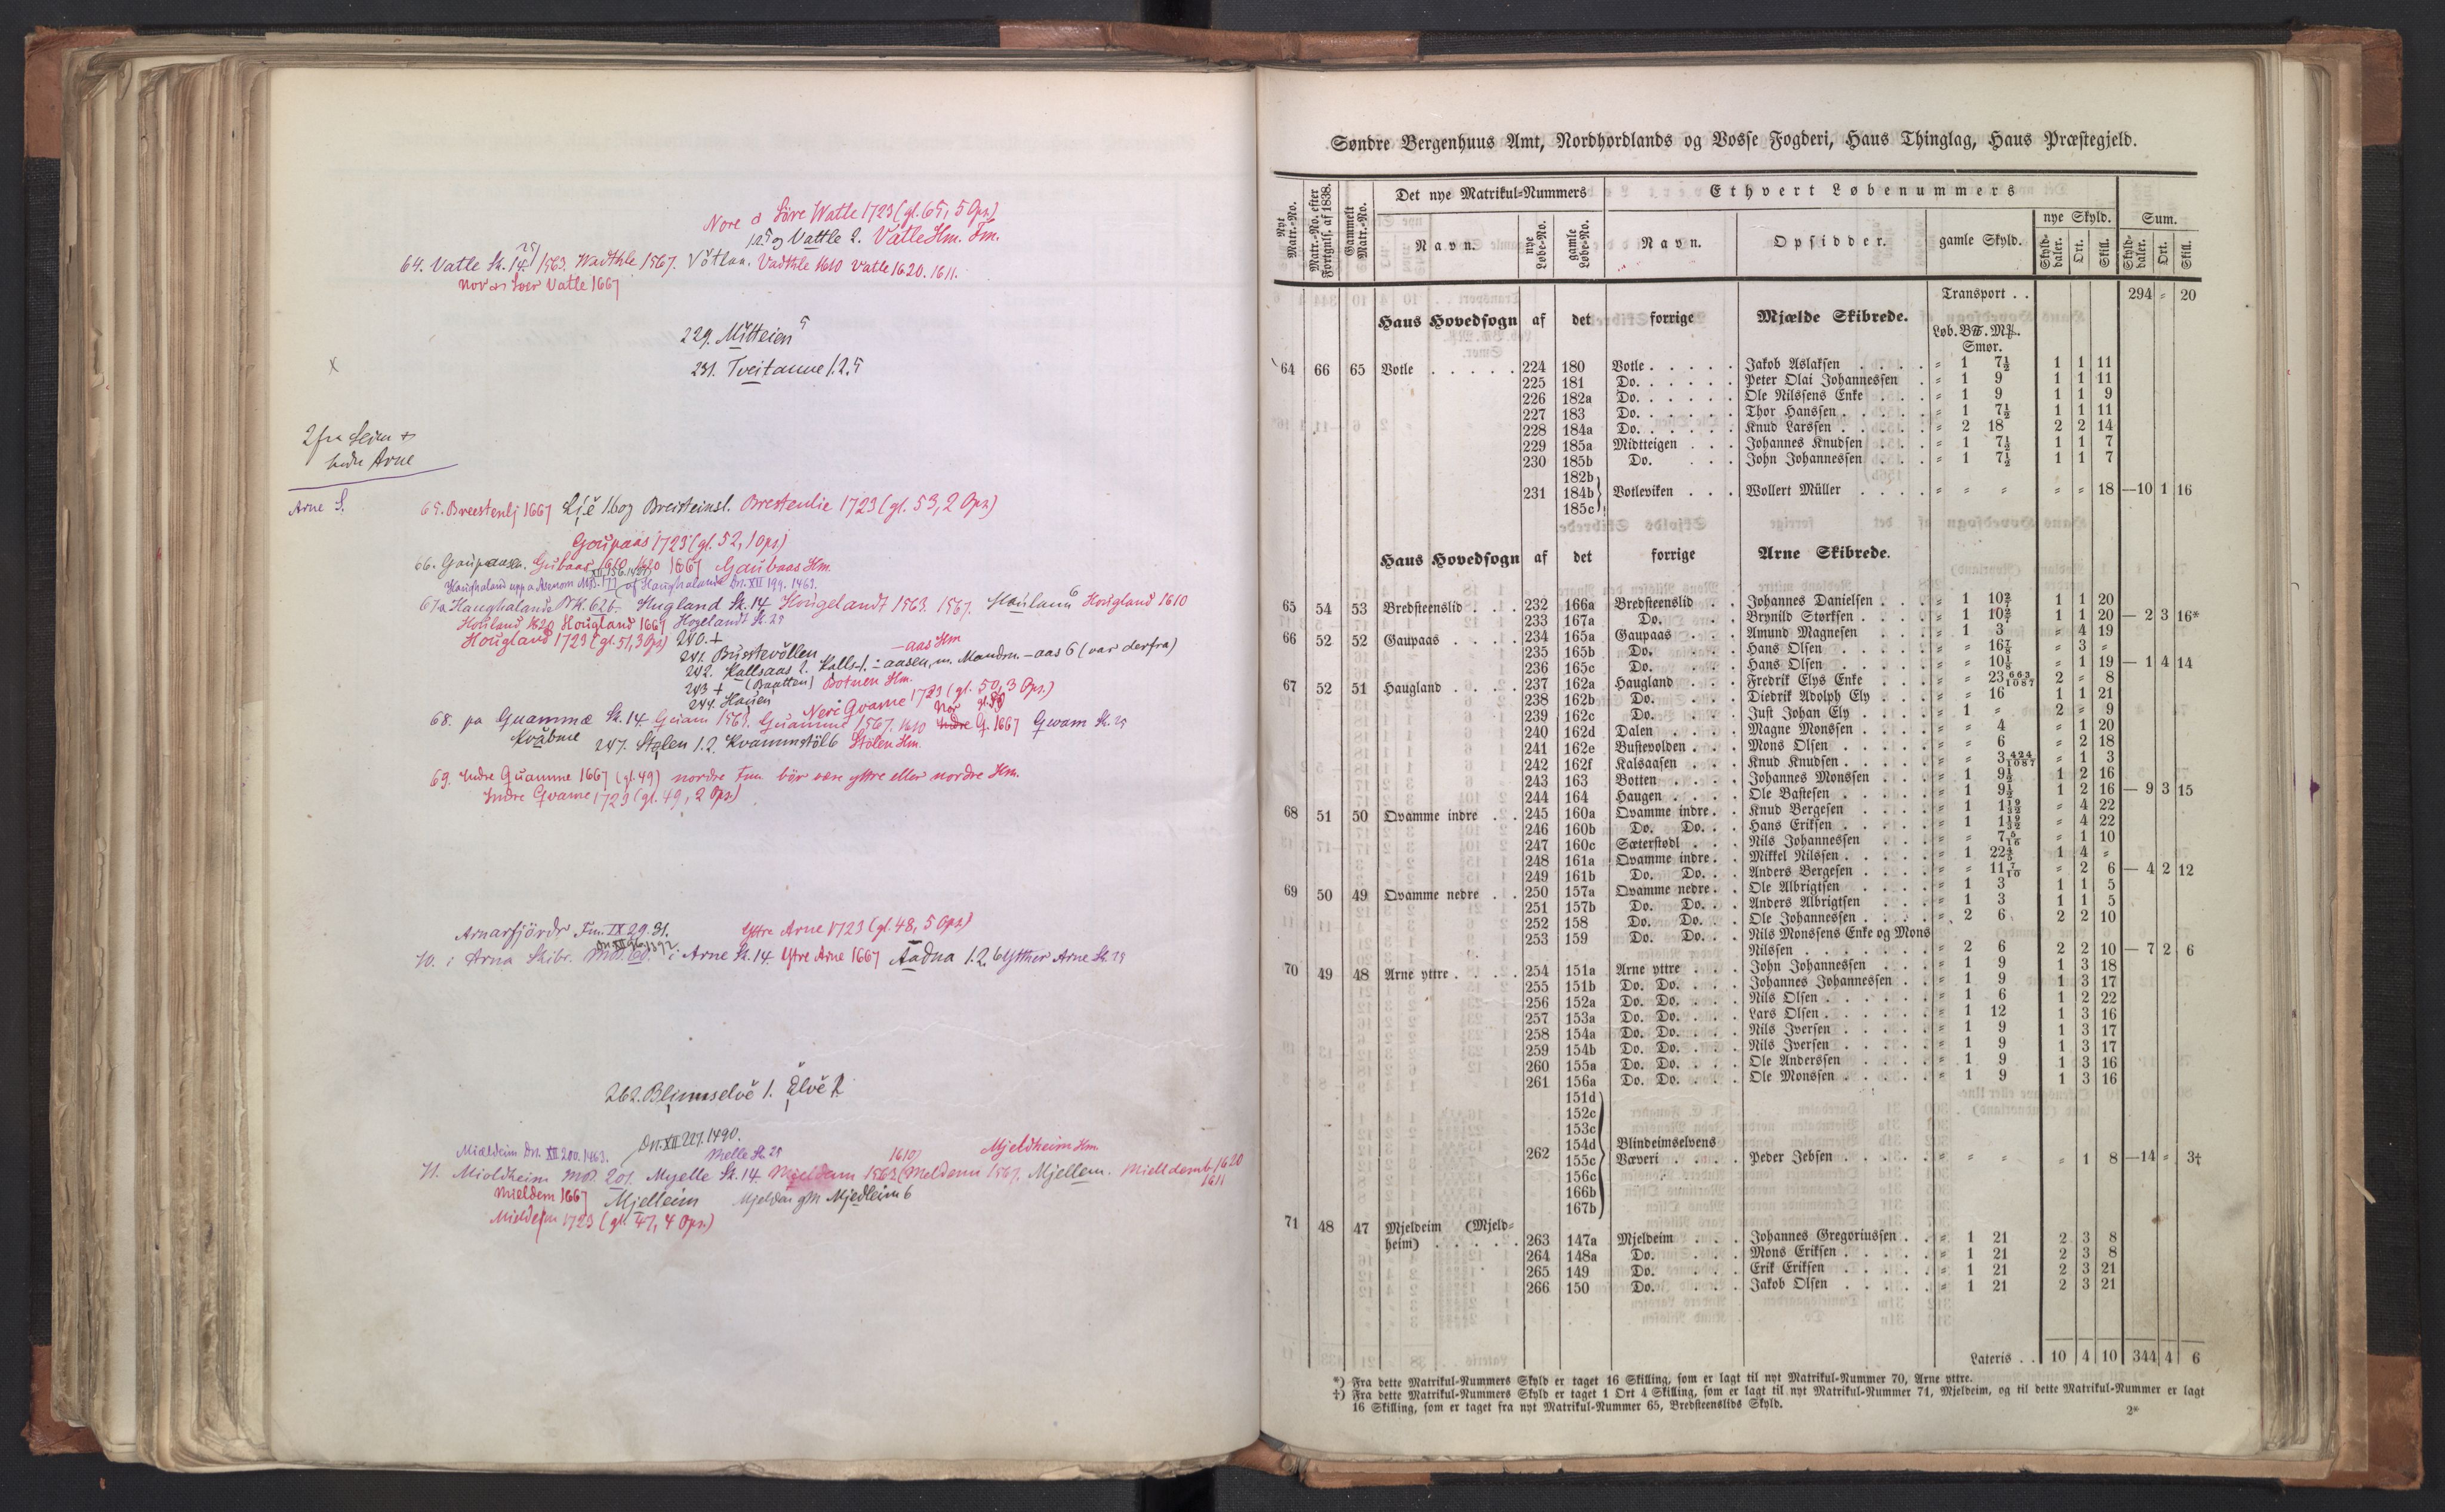 Nore o Söre Watle 1723 (gl. 65, 5 Ops.)
1.2.5 og Vattle 2. Vatle Hm. Fm.
64. Vatle Sk. 14. 1563. Wadthle 1567. Vadthle 1610 Vatle 1620. 1611.
Nor oc Vatle 1667
229. Mitteien 5
231. Tveitanne 1.2.5
x
2 fra
Indre Arne
Arne S.
65. Breestenlj 1667 1.6 og Breisteinsl. Brestenlie 1723 (gl. 53, 2 Ops.)
Goupaas 1723 (gl. 52, 1 Ops.)
66. Gaupaasen. Gubaas 1610 1620 1667 Gaubaas Hm.
Haughaland Dn. XII 199. 1463.
67. a Haughalande BK. 62b. Hugland Sk. 14 Hougelandt 1563. 1567. Hougland 1610
Houland 1620 Hougland 1667 Hogelandt Sk. 25
Hougland 1723 (gl. 51, 3 Ops.) 240. +
241. Bustevöllen
242. Kallsaas 2. Kalls-1. -aasen, m. Mandsn. -aas 6 (var derfra)
-aas Hm
243 + (Baatten) Botnen Hm.
244. Haugen
Nere Qvame 1723 (gl. 50, 3 Ops.)
68. pa Guammæ Sk. 14. Guam 1563. Guamme 1567. 1610 Nor Indre Q. 1667 Qwam Sk. 25
247. Stølen 1.2. Kvammstöl 6 Stölen Hm.
69. Indre Quamme 1667 (gl. 49) nordre Fm. bör være yttre eller nordre Hm.
Indre Qvame 1723 (gl. 49, 2 Ops.)
Arnarfjördr Fm. IX 29. 31.
Yttre Arne 1723 (gl. 48, 5 Ops.)
70. i Arna Skibr. i Arne Sk. 14. Ytre Arne 1667 Aadna 1.2.6 Ytther Arne Sk. 25
262. Blimmselvė 1. Elvė 2
Mialdeim Dn. XII 200. 1463. Dn. XII 227. 1490.
Melle Sk. 25 1610) Mjeldheim Hm.
71. Mioldheim Mb. 20). Myelle Sk. 14 Mieldem 1563 (Meldenn 1567. Mjellem. Mielldemb 1620
1611
Mieldem 1667 Mjelleim Mjedleim 6
Mieldem 1723 (gl. 47, 4 Ops.)
Søndre Bergenhuus Amt, Nordhordlands og Vosse Fogderi, Haus Thinglag, Haus Præstegjeld.
Nyt Matr.-No. Matr.-No. efter Fortgnls. af 1838. Gammelt Matr.-No. Det nye Matrikul-Nummers Ethvert Løbenummers
Navn. nye Løbe-No. gamle Løbe-No. Navn. Opsidder. gamle Skyld. nye Skyld. Sum.
Skylddaler. Ort. Skill. Skylddaler. Ort. Skill.
Transport . . 294 " 20
Haus Hovedsogn af det forrige Mjælde Skibrede.
Løb. B℔. M℔.
Smør.
64 66 65 Votle . . . . . 224 180 Votle . . . . . Jakob Aslaksen . . . . " 1 7½ 1 1 11
225 181 Do. . . . . . Peter Olai Johannessen . " 1 9 1 1 11
226 182a Do. . . . . . Ole Nilssens Enke . . . " 1 9 1 1 9
227 183 Do. . . . . . Thor Hanssen . . . . . " 1 7½ 1 1 11
228 184a Do. . . . . . Knud Larssen . . . . . " 2 18 2 2 14
229 185a Midtteigen . . . Johannes Knudsen . . . " 1 7½ 1 1 7
230 185b Do. . . . Johan Johannessen . . . " 1 7½ 1 1 7
182b
231 184b Votleviken . . . Wollert Müller . . . . " " " " " 18 —10 1 16
185c
Haus Hovedsogn af det forrige Arne Skibrede.
65 54 53 Bredsteenslid . . . 232 166a Bredsteenslid . . Johannes Danielsen . . . " 1 10 2/7 1 1 20
233 167a Do. . . Brynild Størksen . . . . " 1 10 2/7 1 1 20 — 2 3 16*
66 52 52 Gaupaas . . . . 234 165a Gaupaas . . . Amund Magnesen . . . " 1 3 " 4 19
235 165b Do. . . . Hans Olsen . . . . . " " 16⅞ " 3 "
236 165c Do. . . . Hans Olsen . . . . . " " 10⅛ " 1 19 — 1 4 14
67 52 51 Haugland . . . . 237 162a Haugland . . . Fredrik Elys Enke . . . " " 23 663/1087 2 " 8
238 162b Do. . . . Diedrik Adolph Ely . . . " " 16 1 1 21
239 162c Do. . . . Just Johan Ely . . . . " 1 " 2 " 9
240 162d Dalen . . . . Magne Monssen . . . . " " 4 " 1 20
241 162e Bustevolden . . . Mons Olsen . . . . . " " 6 " 2 18
242 162f Kalsaasen . . . Knud Knudsen . . . . . " " 3 424/1087 " 1 3
243 163 Botten . . . . Johannes Monssen . . . " 1 9½ 1 2 16
244 164 Haugen . . . . Ole Bastesen . . . . . " 1 9½ 1 2 16 — 9 3 15
68 51 50 Qvamme indre . . 245 160a Qvamme indre . . Knud Bergesen . . . . " 1 1 19/32 " 4 22
246 160b Do. Do. . . Hans Eriksen . . . . . " 1 1 19/32 " 4 22
247 160c Sæterstødl . . . Nils Johannessen . . . " " 7 5/16 " 1 10
248 161a Qvamme indre . . Mikkel Nilssen . . . . . " 1 22⅘ 1 4 "
249 161b Do. Do. . . Anders Bergesen . . . . " " 11 7/10 " 2 6 — 4 2 12
69 50 49 Qvamme nedre . . 250 157a Qvamme nedre . . Ole Albrigtsen . . . . " 1 3 1 1 5
251 157b Do. Do. . . Anders Albrigtsen . . . " 1 3 1 1 5
252 158 Do. Do. . . Ole Johannessen . . . . " 2 6 2 2 10
253 159 Do. Do. . . Nils Monssens Enke og Mons
Nilssen . . . . . . " 2 6 2 2 10 — 7 2 6
70 49 48 Arne yttre . . . . 254 151a Arne yttre . . . John Johannessen . . . " 1 9 1 3 18
255 151b Do. Do. . . . Johannes Johannessen . . " 1 9 1 3 17
256 152a Do. Do. . . . Nils Olsen . . . . . . " 1 6 1 2 22
257 153a Do. Do. . . . Lars Olsen . . . . . . " 1 12 1 3 16
258 154a Do. Do. . . . Nils Iversen . . . . . " 1 9 1 3 17
259 154b Do. Do. . . . Nils Iversen . . . . . " 1 9 1 3 17
260 155a Do. Do. . . . Ole Anderssen . . . . " 1 9 1 3 16
261 156a Do. Do. . . . Ole Monssen . . . . . " 1 9 1 3 16
151d
152c
153c
154d Blindeimselvens
262 155c Væveri . . . . Peder Jebsen . . . . . " " " " 1 8 —14 " 3†
156c
166b
167b
71 48 47 Mjeldeim (Mjeld-
heim) . . . . . 263 147a Mjeldeim . . . Johannes Gregoriussen . . " 1 21 2 3 8
264 148a Do. . . . Mons Eriksen . . . . . " 1 21 2 3 8
265 149 Do. . . . Erik Eriksen . . . . . " 1 21 2 3 21
266 150 Do. . . . Jakob Olsen . . . . . " 1 21 2 3 21
Lateris . . 10 4 10 344 4 6
*) Fra dette Matrikul-Nummers Skyld er taget 16 Skilling, som er lagt til nyt Matrikul-Nummer 70, Arne yttre.
†) Fra dette Matrikul-Nummers Skyld er taget 1 Ort 4 Skilling, som er lagt til nyt Matrikul-Nummer 71, Mjeldeim, og til dette Matrikul-Nummer er lagt
16 Skilling, som er taget fra nyt Matrikul-Nummer 65, Bredsteenslids Skyld.
2*